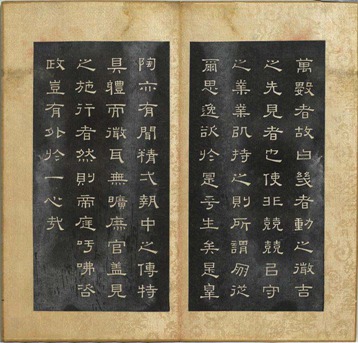 萬數者故曰幾者動之微吉
之先見者也使非兢兢㠯守
之業業以持之則所謂朋從
爾思逸欲於是乎生矣是皐
陶亦有聞精弌執中之傳特
具體而微耳無曠庶官蓋見
之施行者然則帝庭吁咈咨
政豈有外於一心哉